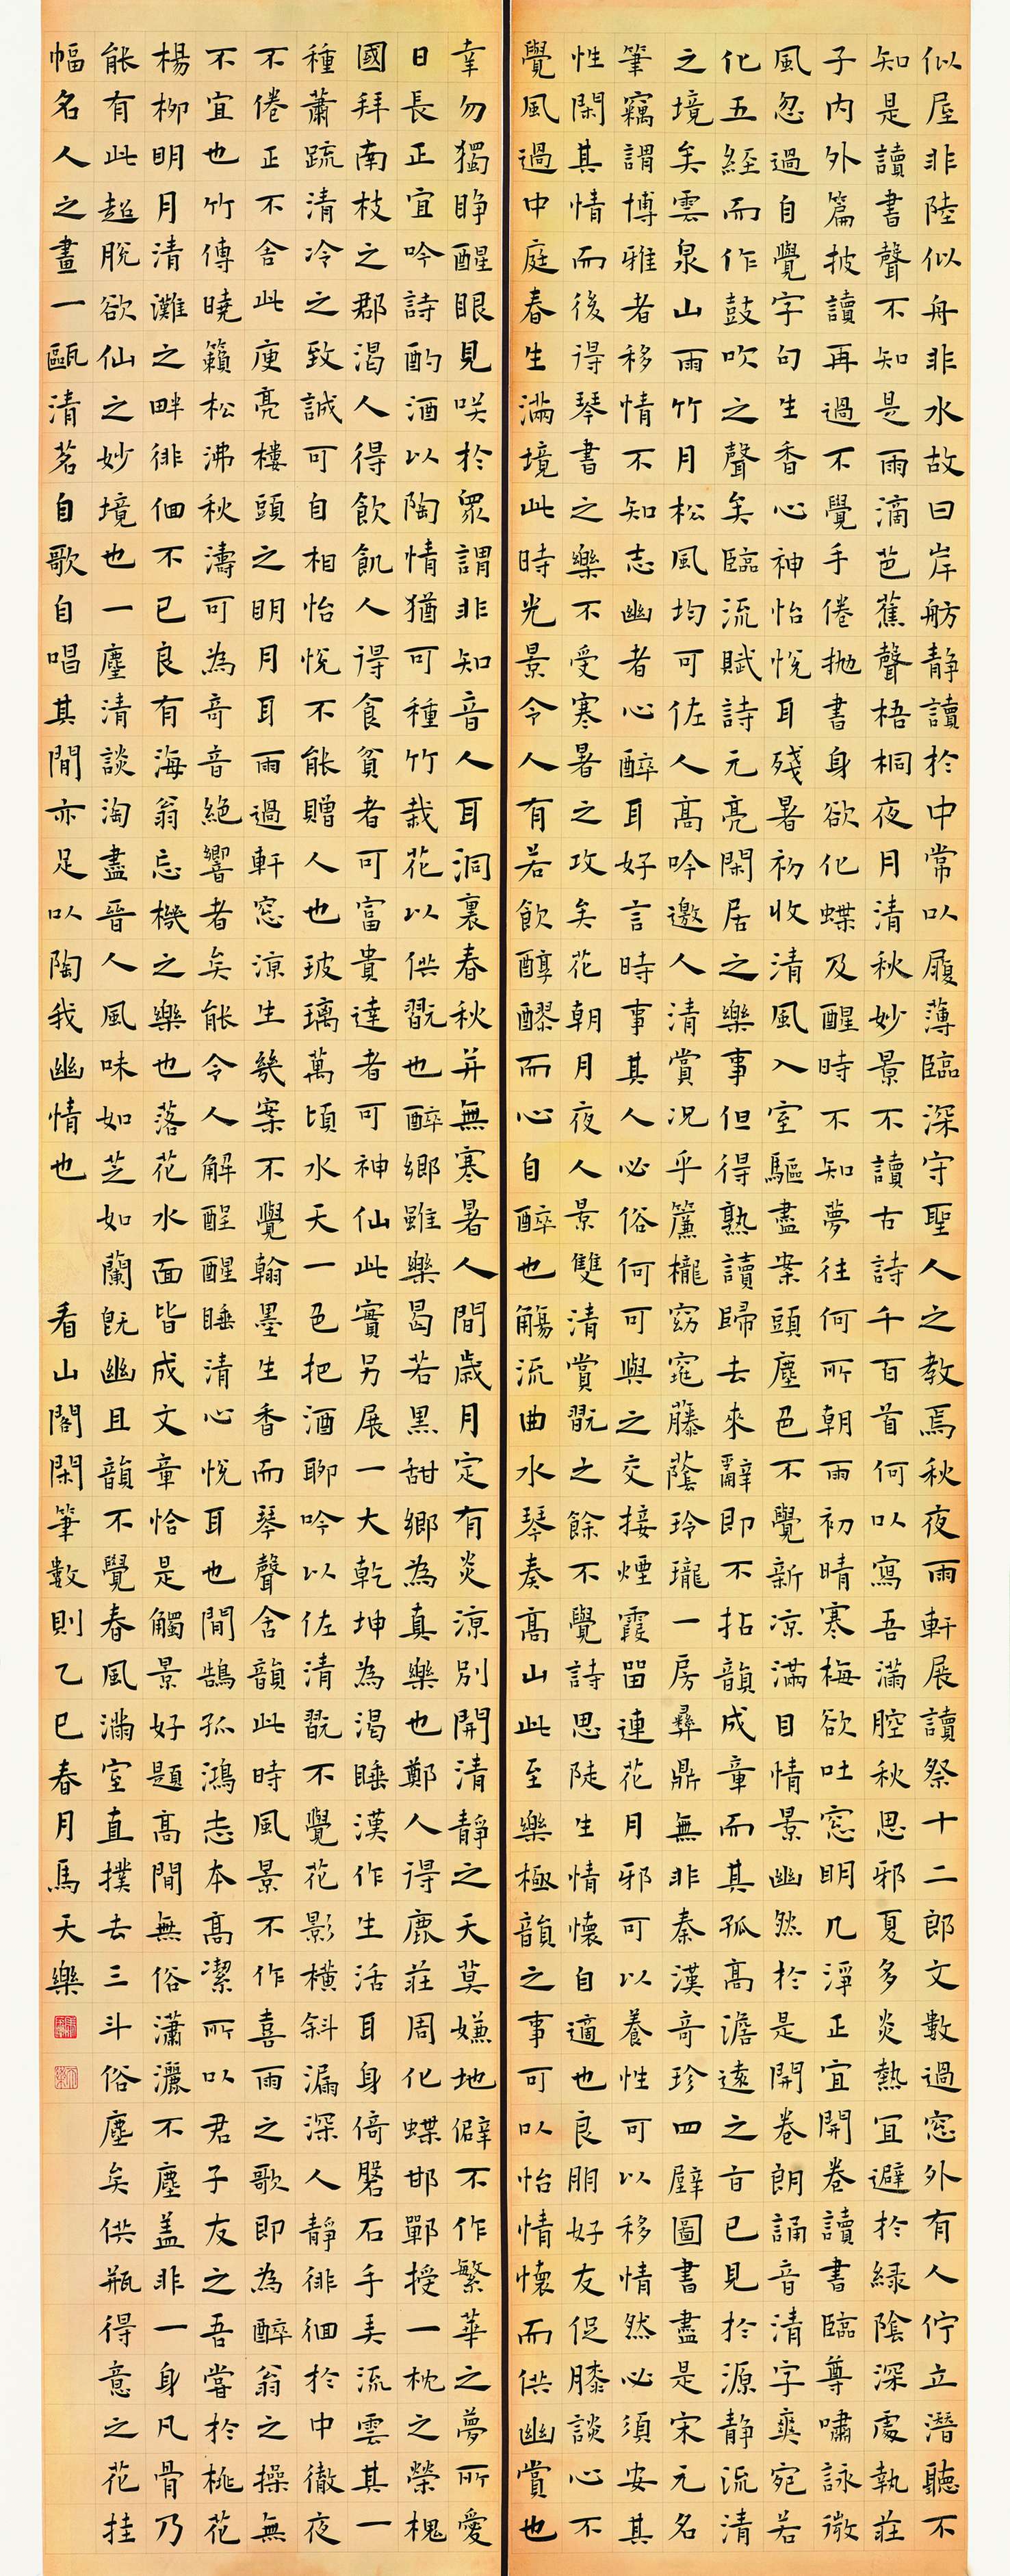 似屋非陸似舟非水故曰岸舫静讀於中常以履薄臨深守聖人之教焉秋夜雨軒展讀祭十二郎文數過窓外有人佇立潛聽不
知是讀書聲不知是雨滴芭蕉聲梧桐夜月清秋妙景不讀古詩千百首何以寫吾滿腔秋思邪夏多炎熱宜避於緑陰深處執莊
子内外篇披讀再過不覺手倦抛書身欲化蝶及醒時不知夢往何所朝雨初晴寒梅欲吐窓明几淨正宜開卷讀書臨尊嘯詠微
風忽過自覺字句生香心神怡悅耳殘暑初收清風入室驅盡案頭塵色不覺新涼滿目情景幽然於是開卷朗誦音清字爽宛若
化五經而作鼓吹之聲矣臨流賦詩元亮閑居之樂事但得熟讀歸去來辭即不拈韻成章而其孤高澹遠之旨已見於源静流清
之境矣雲泉山雨竹月松風均可佐人高吟邀人清賞况乎簾櫳窈窕藤蔭玲瓏一房彝鼎無非秦漢奇珍四壁圖書盡是宋元名
筆竊謂博雅者移情不知志幽者心醉耳好言時事其人必俗何可與之交接煙霞留連花月邪可以養性可以移情然必須安其
性閑其情而後得琴書之樂不受寒暑之攻矣花朝月夜人景雙清賞翫之餘不覺詩思陡生情懷自適也良朋好友促膝談心不
覺風過中庭春生滿境此時光景令人有若飲醇醪而心自醉也觴流曲水琴奏高山此至樂極韻之事可以怡情懷而供幽賞也
幸勿獨睁醒眼見咲於衆謂非知音人耳洞裏春秋并無寒暑人間歳月定有炎涼別開清靜之天莫嫌地僻不作繁華之夢所愛
日長正宜吟詩酌酒以陶情猶可種竹栽花以供翫也醉鄉雖樂曷若黑甜鄉為真樂也鄭人得鹿莊周化蝶邯鄲授一枕之榮槐
國拜南枝之郡渴人得飲飢人得食貧者可富貴達者可神仙此實另展一大乾坤為渴睡漢作生活耳身倚磐石手美流雲其一
種蕭疏清冷之致誠可自相怡悅不能贈人也玻璃萬頃水天一色把酒聊吟以佐清翫不覺花影橫斜漏深人靜徘徊於中徹夜
不倦正不舍此庾亮樓頭之明月耳雨過軒窓涼生幾案不覺翰墨生香而琴聲舍韻此時風景不作喜雨之歌即為醉翁之操無
不宜也竹傳曉籟松沸秋濤可為奇音絕響者矣能令人解酲醒睡清心悅耳也間鵠孤鴻志本高潔所以君子友之吾嘗於桃花
楊柳明月清灘之畔徘徊不已良有海翁忘機之樂也落花水面皆成文章恰是觸景好題高間無俗瀟灑不塵盖非一身凡骨乃
能有此超脫欲仙之妙境也一塵清談淘盡晉人風味如芝如蘭既幽且韻不覺春風滿室直撲去三斗俗塵矣供瓶得意之花挂
幅名人之畫一甌清茗自歌自唱其間亦足以陶我幽情也 看山閣閑筆數則乙巳春月馬天樂